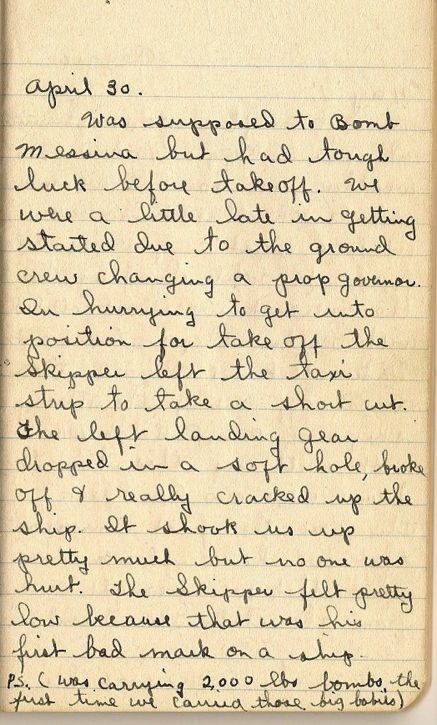 April 30.
Was supposed to Bomb
Messina but had tough
luck before takeoff. We
were a little late in getting
started due to the ground
crew changing a prop governor.
In hurrying to get into
position for take off the
Skipper left the taxi
strip to take a short cut.
The left landing gear
dropped in a soft hole, broke
off & really cracked up the
ship. It shook us up
pretty much but no one was
hurt. The Skipper felt pretty
low because that was his
first bad mark on a ship.
P.S. (was carrying 2,000 lbs bombs, the
first time we carried those big babies)